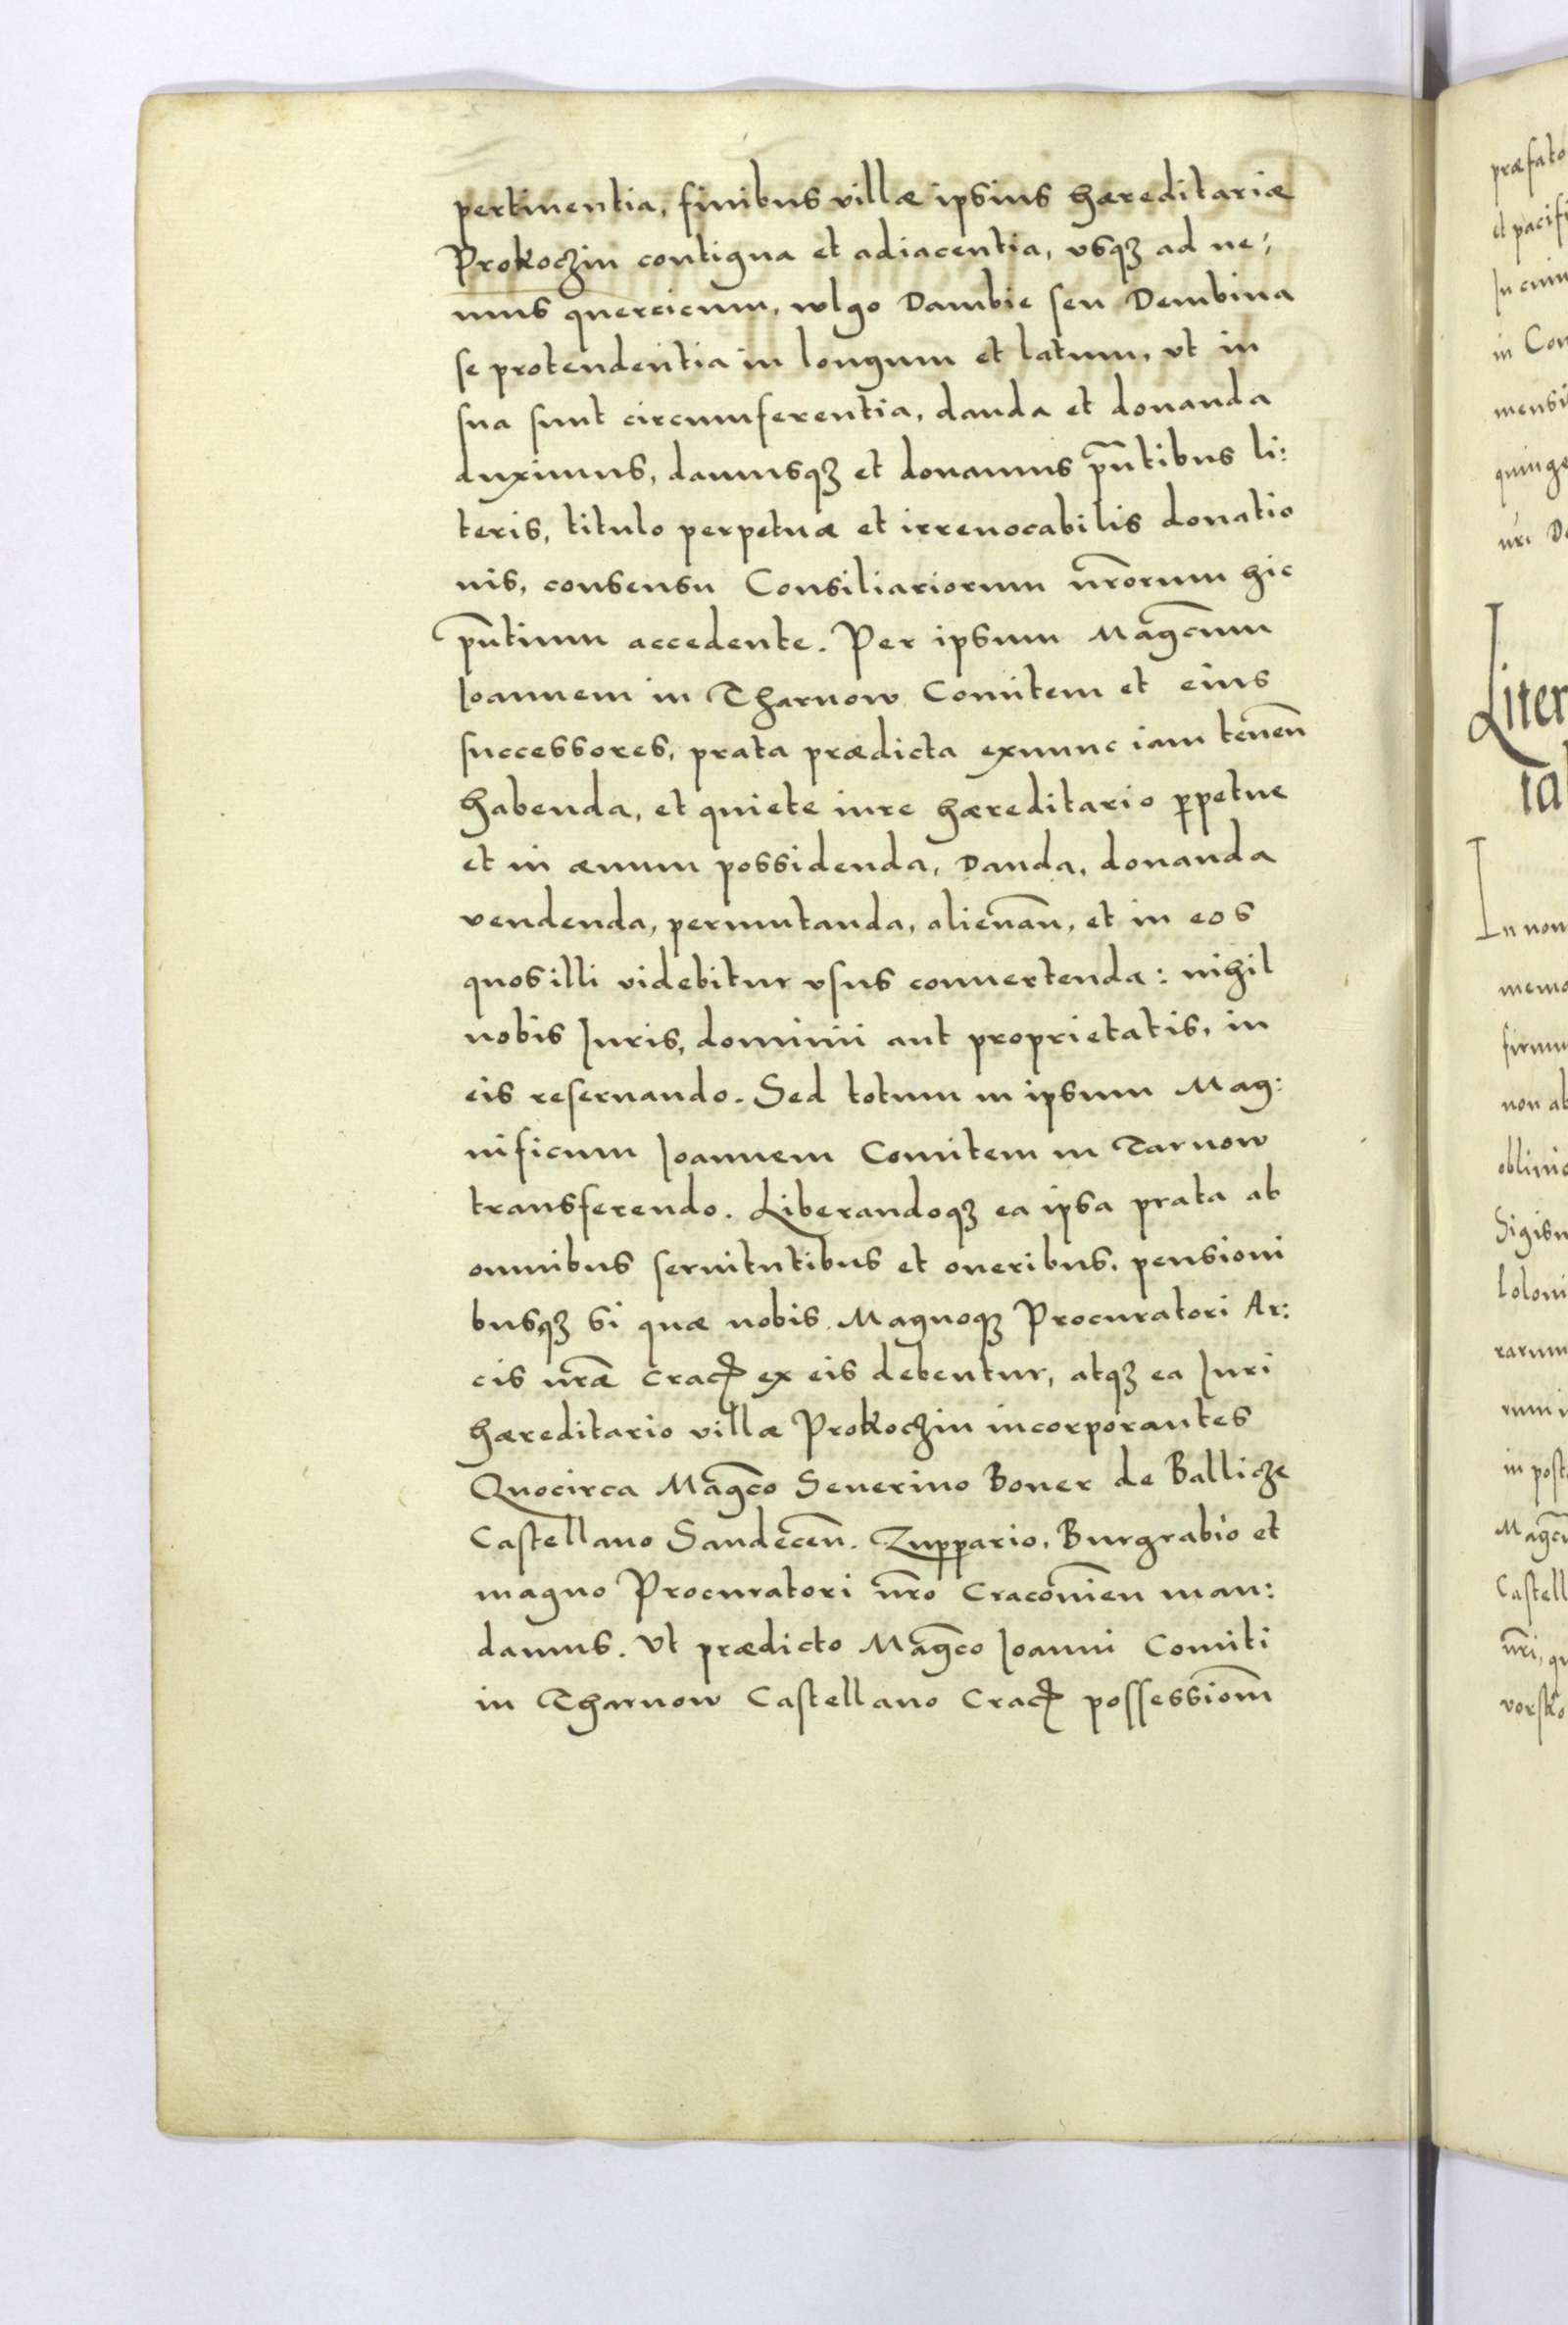 pertinentia, finibus villæ ipsius hæreditariæ
Prokoczin contigua et adiacentia, vsqꝫ ad ne:
mus quercicum, wlgo Dambie seu Dembina
se protendentia in longum et latum, vt in
sua sunt circumferentia, danda et donanda
duximus, damusqꝫ et donamus pñtibus li:
teris, titulo perpetuæ et irreuocabilis donatio
nis, consensu Consiliariorum nr̃orum hic
pñtium accedente. Per ipsum Magcũm
Joannem in Tharnow Comitem et eius
successores, prata prædicta exnunc iam teneñ
habenda, et quiete iure hæreditario ꝑpetue
et in æuum possidenda, Danda, donanda
vendenda, permutanda, alienañ, et in eos
quos illi videbitur vsus conuertenda: nihil
nobis Juris, dominii aut proprietatis, in
eis reseruando. Sed totum in ipsum Mag:
nificum Joannem Comitem in Tarnow
transferendo. Liberandoqꝫ ea ipsa prata ab
omnibus seruitutibus et oneribus, pensioni
busqꝫ si quæ nobis Magnoqꝫ Procuratori Ar:
cis nr̃æ Cracꝭ ex eis debentur, atqꝫ ea Juri
hæreditario villæ Prokoczin incorporantes
Quocirca Magc̃o Seuerino Boner de Ballicze
Castellano Sandeceñ. Zuppario, Burgrabio et
magno Procuratori nr̃o Cracouieñ man:
damus. Vt prædicto Magc̃o Joanni Comiti
in Tharnow Castellano Cracꝭ possessiom̃
præfato
et pacifi
Jn cuiu
in Con
mensi
quinge
nr̃i D
Liter
ia
In nom
memo
firmu
non ab
obliuio
Sigism
loloni
rarum
rum i
in post
Magcũ
Castell
nr̃i, qu
vorsko